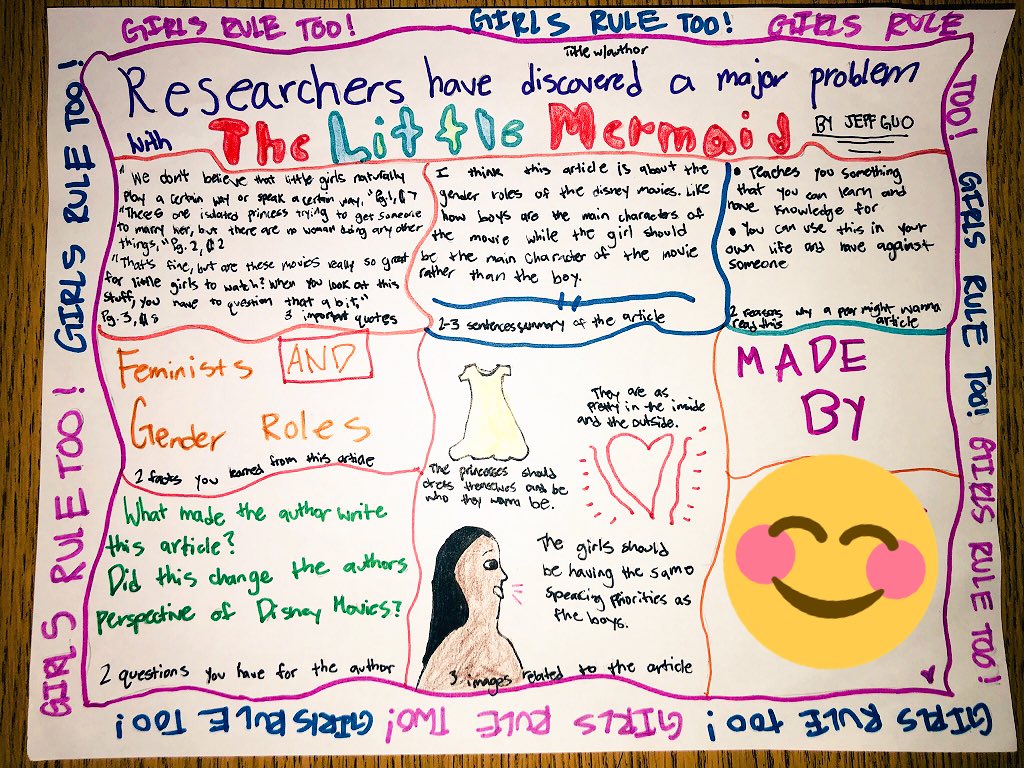 GIRLS RULE TOO! GIRLS RULE TOO! GIRLS RULE
TOO!
GIRLS RULE TOO! GIRLS RULE TOO!
GIRLS RULE TOO! GIRLS RULE TWO! GIRLS RULE TOO!
GIRLS RULE TOO! GIRLS RULE TOO!
Title w/author
Researchers have discovered a major problem
with The Little Mermaid BY JEFF GUO
"We don't believe that little girls naturally
play a certain way or speak a certain way,"Pg.1,¶7
"There's one isolated princess trying to get someone
to marry her, but there are no woman doing any other
things,"Pg.2,¶2
"That's fine, but are these movies really so great
for little girls to watch? When you look at this
stuff, you have to question that a bit,"
Pg.3,¶8
3 important quotes
I think this article is about the
gender roles of the disney movies. Like
how boys are the main characters of
the movie while the girl should
be the main character of the movie
rather than the boy.
2-3 sentences summary of the article
• Teaches you something
that you can learn and
have knowledge for
• You can use this in your
own life and have against
someone
2 reasons why a peer might wanna
read this article
Feminists AND
Gender Roles
2 facts you learned from this article
The princesses should
dress themselves and be
who they wanna be.
They are as
pretty in the inside
and the outside.
The girls should
be having the same
speaking priorities as
the boys.
3 images related to the article
MADE
BY
What made the author write
this article?
Did this change the authors
perspective of Disney Movies?
2 questions you have for the author